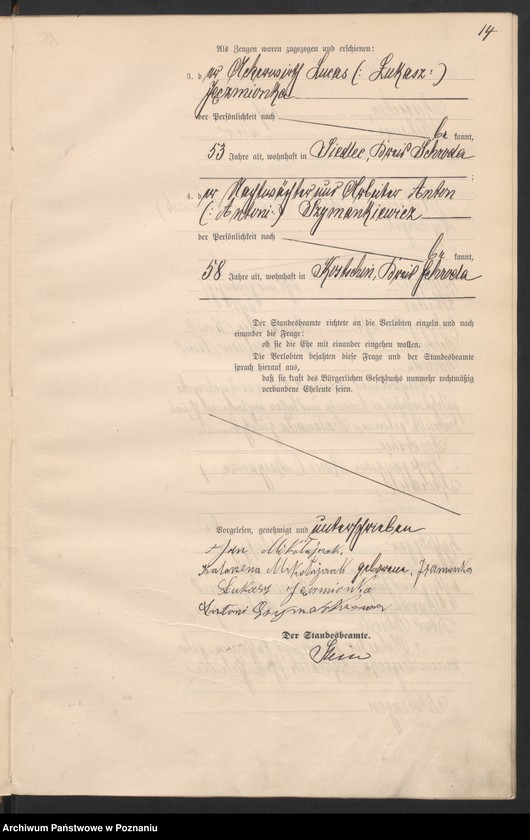 14
Als Zeugen waren zugezogen und erschienen:
3. der Ackerwirth Lucas (: Łukasz :)
Jęczmionka
der Persönlichkeit nach
be kannt,
53 Jahre alt, wohnhaft in Siedlec, Kreis Schroda
;
4. der Nachtwächter und Arbeiter Anton
(: Antoni :) Szymankiewicz
der Persönlichkeit nach
be kannt,
58 Jahre alt, wohnhaft in Kostschin, Kreis Schroda
Der Standesbeamte richtete an die Verlobten einzeln und nach
einander die Frage:
ob sie die Ehe mit einander eingehen wollen.
Die Verlobten bejahten diese Frage und der Standesbeamte
sprach hierauf aus,
daß sie kraft des Bürgerlichen Gesetzbuchs nunmehr rechtmäßig
verbundene Eheleute seien.
Vorgelesen, genehmigt und unterschrieben
Jan Mikołajczak,
Katarzena Mikołajczak geborene,
Łukasz Jęczmionka
Antoni Szymankiewicz
Der Standesbeamte.
Stein
Archiwum Państwowe w Poznaniu